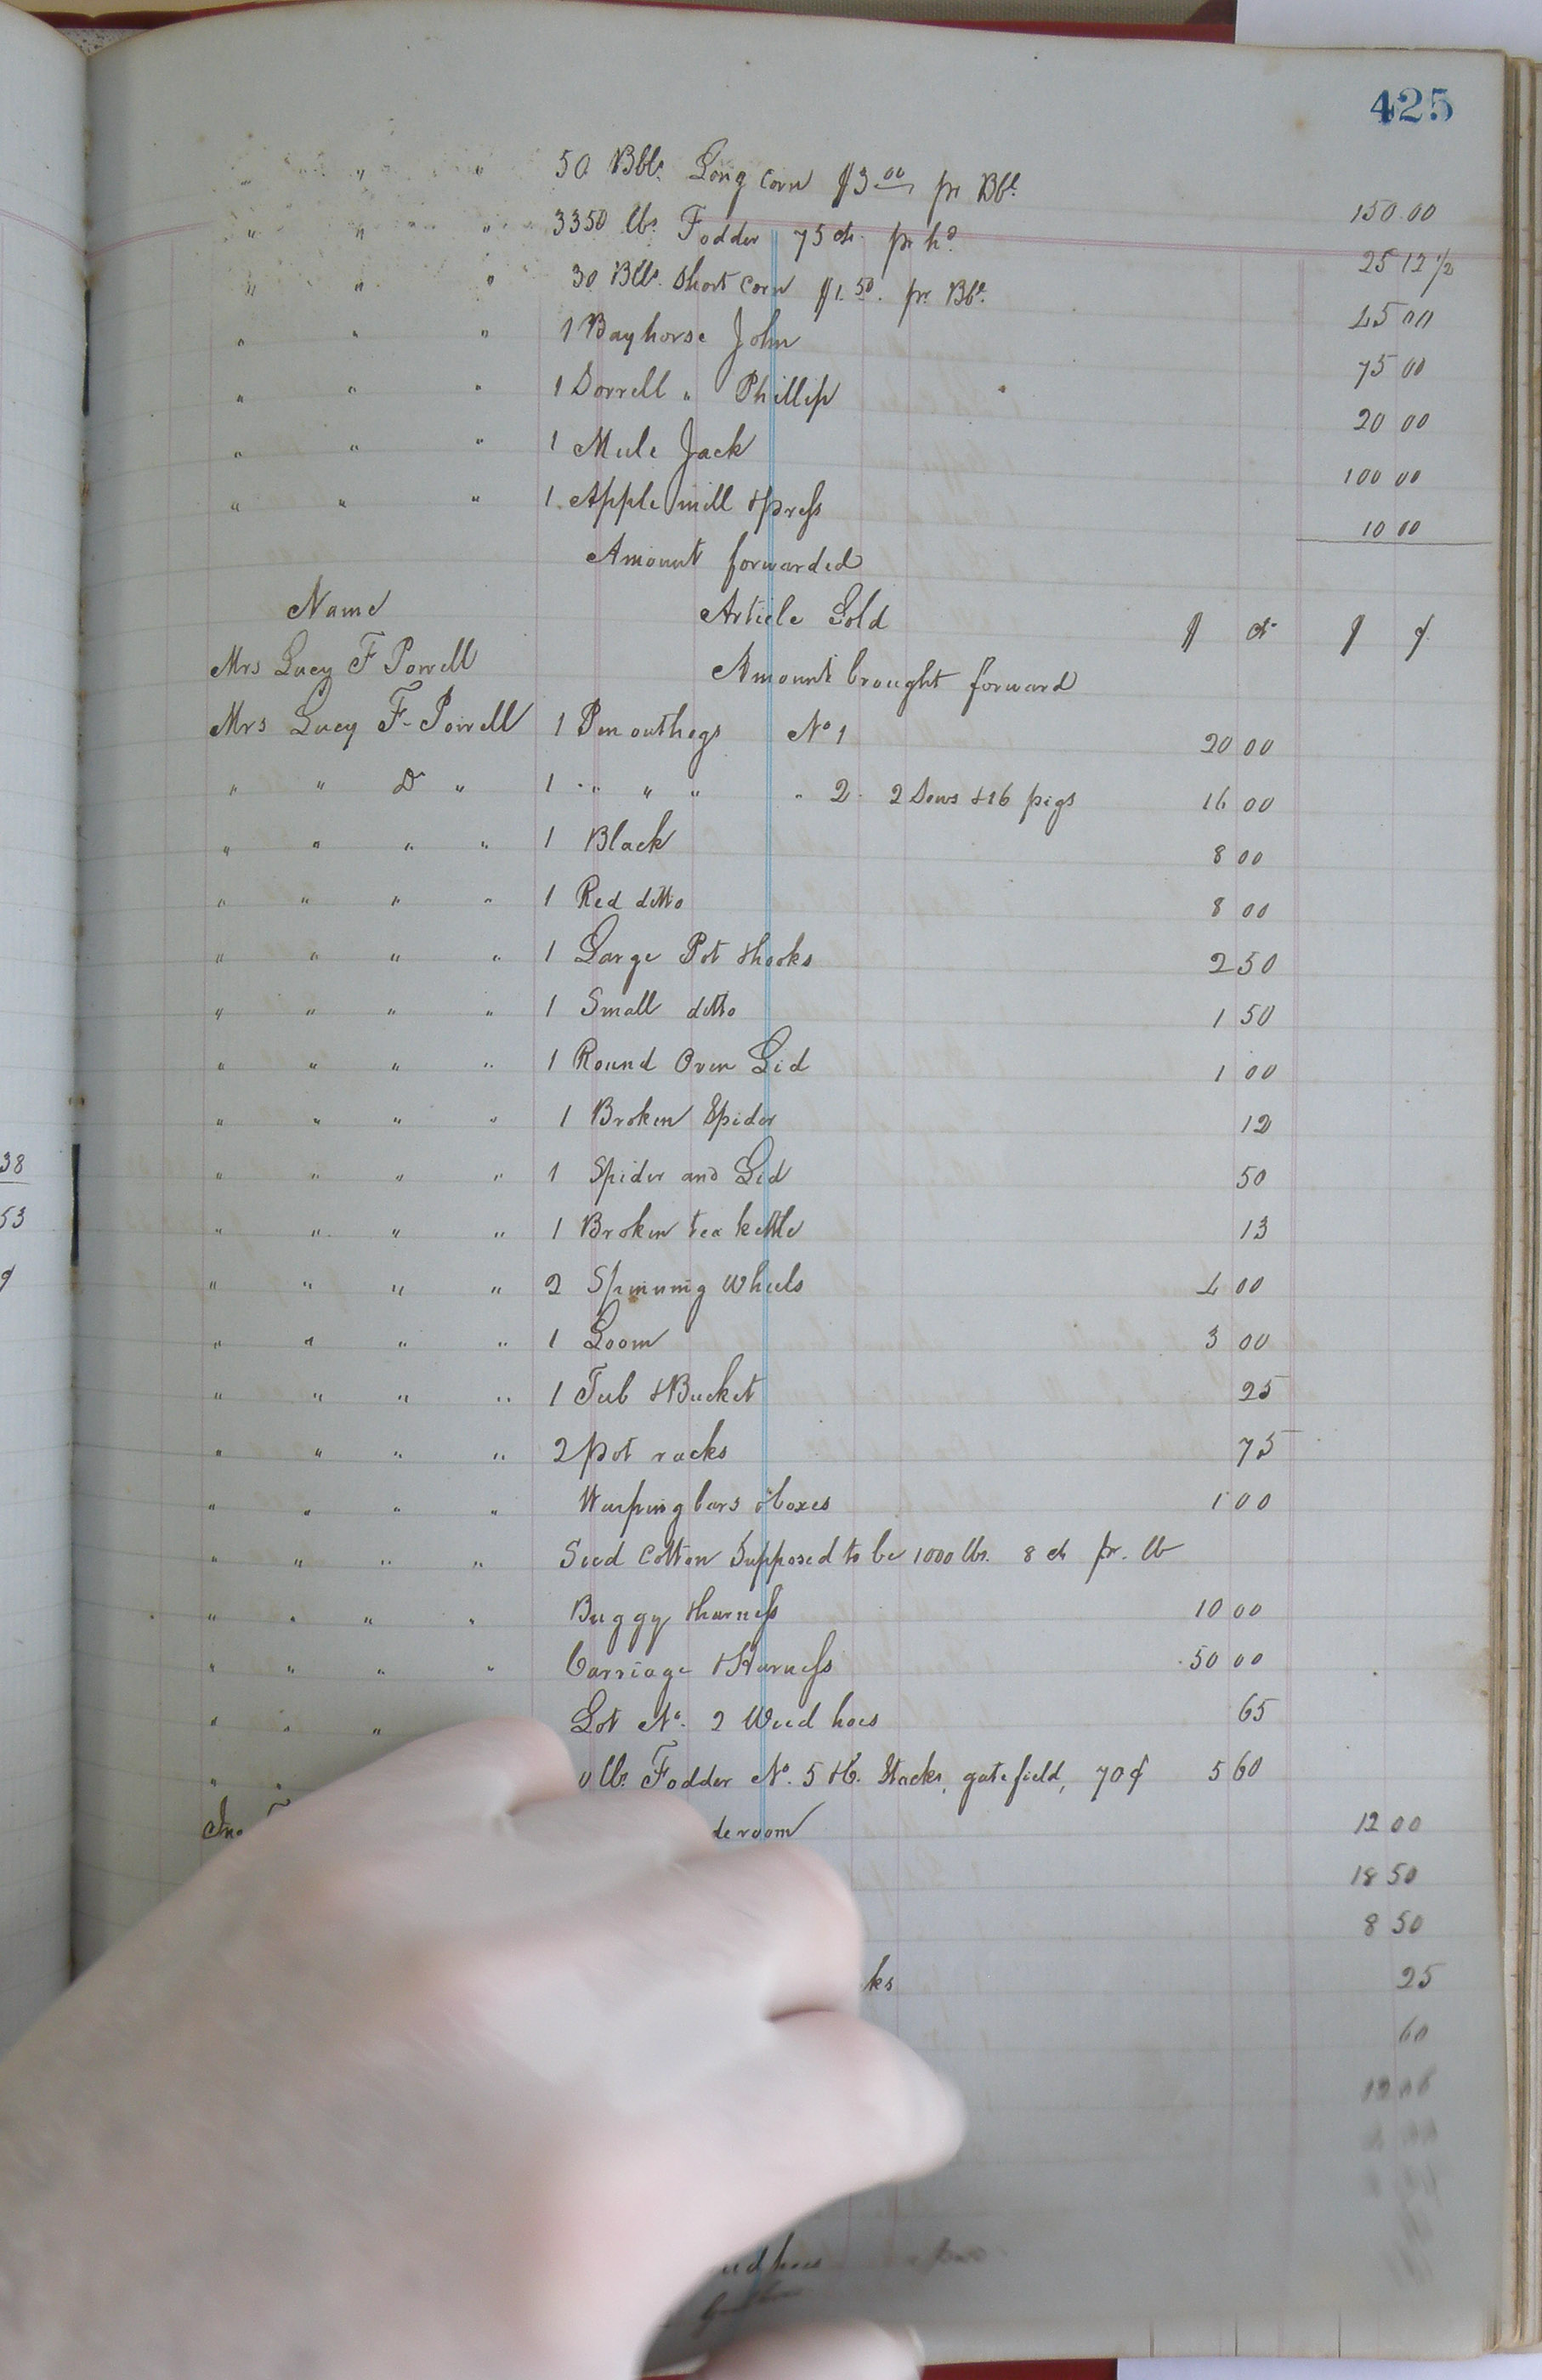 425
" " " 50 Bbls. Long Corn $3.00 pr Bbl. 150 00
" " " 3350 lbs. Fodder 75 cts. pr hd. 25 12 1/2
" " " 30 Bbls. Short Corn $1.50. pr. Bbl. 45 00
" " " 1 Bay horse John 75 00
" " " 1 Sorrell " Phillip 20 00
" " " 1 Mule Jack 100 00
" " " 1 Apple mill & press 10 00
Amount forwarded
Name Article Sold $ cts $ ¢
Mrs Lucy F Powell Amount brought forward
Mrs Lucy F. Powell 1 Pen out hogs No 1 20 00
" " Do " 1 " " " " 2. 2 Sows & 16 pigs 16 00
" " " " 1 Black 8 00
" " " " 1 Red ditto 8 00
" " " " 1 Large Pot & hooks 2 50
" " " " 1 Small ditto 1 50
" " " " 1 Round Oven Lid 1 00
" " " " 1 Broken Spider 12
" " " " 1 Spider and Lid 50
" " " " 1 Broken tea kettle 13
" " " " 2 Spinning Wheels 4 00
" " " " 1 Loom 3 00
" " " " 1 Tub & Bucket 25
" " " " 2 pot racks 75
" " " " Warping bars & boxes 1 00
" " " " Seed Cotton Supposed to be 1000 lbs. 8 cts pr. lb
" " " " Buggy & harness 10 00
" " " " Carriage & Harness 50 00
" " " Lot No. 2 Weed hoes 65
" " 0 lbs. Fodder No. 5 & 6. Stacks, gate field, 70¢ 5 60
Jno. de room 12 00
18 50
8 50
ks 25
60
38
53